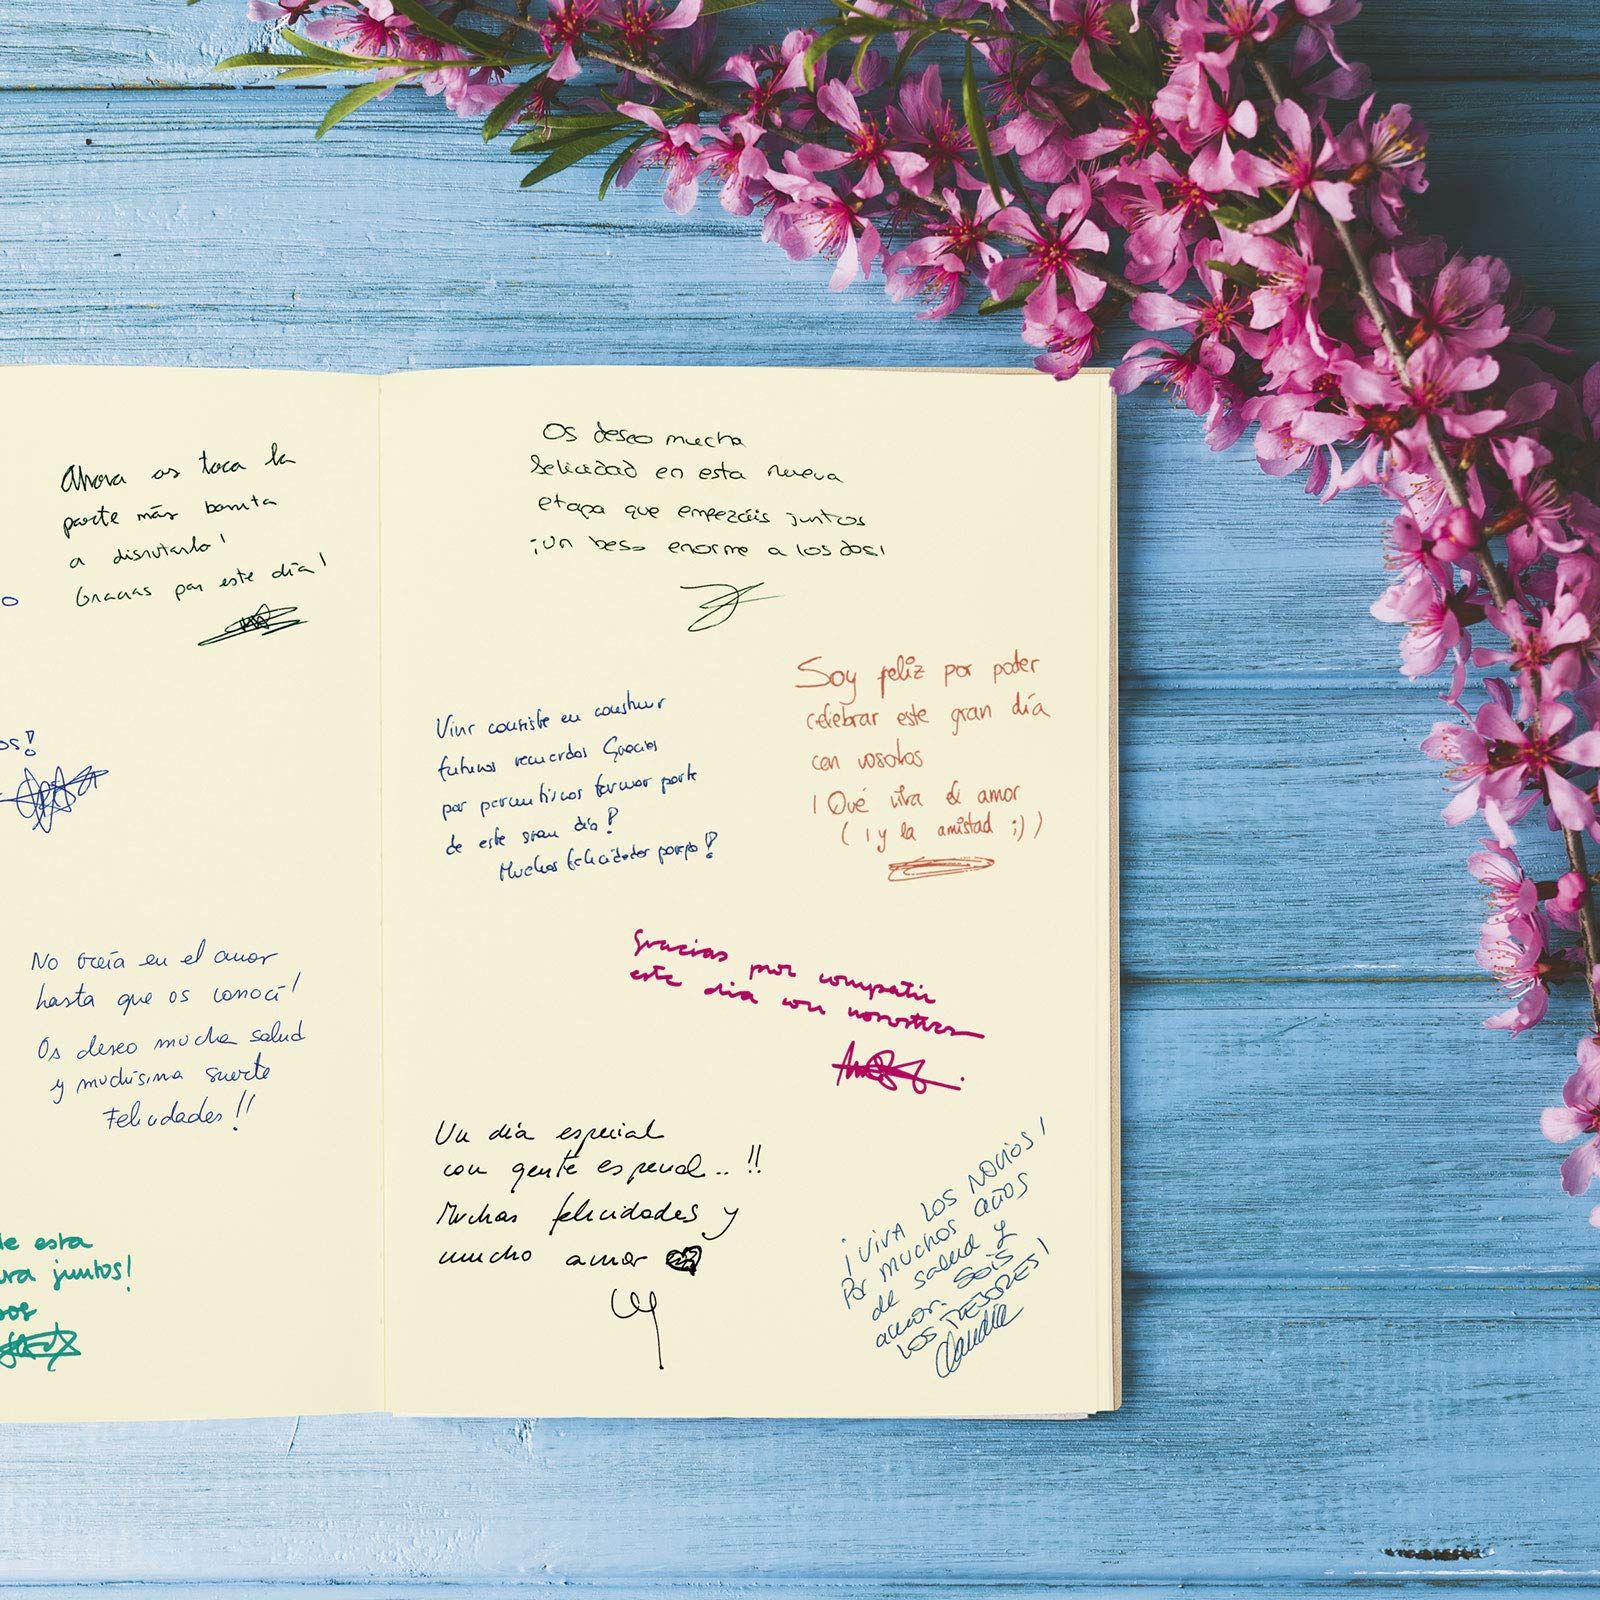 Ahora os toca la
parte más bonita
a disfrutarla!
Gracias por este día!
o
os!
No creía en el amor
hasta que os conocí!
Os deseo mucha salud
y muchísima suerte
Felicidades!!
de esta
juntos!
Os deseo mucha
felicidad en esta nueva
etapa que empezáis juntos
¡un beso enorme a los dos!
Vivir consiste en construir
futuros recuerdos Gracias
por permitirnos formar parte
de este gran día!
Muchas felicidades pareja!
Soy feliz por poder
celebrar este gran día
con vosotros
¡Qué viva el amor
(¡y la amistad ;))
Gracias por compatir
este dia con nosotros
Un día especial
con gente especial..!!
Muchas felicidades y
mucho amor
¡VIVA LOS NOVIOS!
Por muchos años
de salud y
amor. Sois
LOS MEJORES!
Claudia